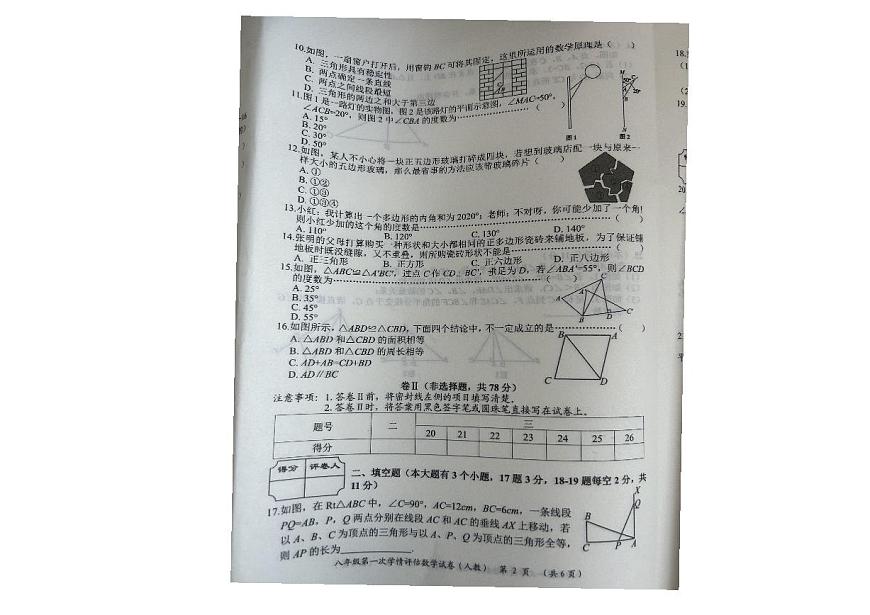 10.如图,一扇窗户打开后,用窗钩 BC 可将其固定,这里所运用的数学原理是(  )
A. 三角形具有稳定性
B. 两点确定一条直线
C. 两点之间线段最短
D. 三角形的两边之和大于第三边
11.图1是一路灯的实物图,图2是该路灯的平面示意图,∠MAC=50°,
∠ACB=20°,则图2中∠CBA 的度数为(  )
A. 15°
B. 20°
C. 30°
D. 50°
图1
图2
12.如图,某人不小心将一块正五边形玻璃打碎成四块,若想到玻璃店配一块与原来一
样大小的五边形玻璃,那么最省事的方法应该带玻璃碎片(  )
A. ①
B. ①②
C. ①③
D. ①③④
13.小红:我计算出一个多边形的内角和为2020°;老师:不对呀,你可能少加了一个角!
则小红少加的这个角的度数是(  )
A. 110° B. 120° C. 130° D. 140°
14.张明的父母打算购买一种形状和大小都相同的正多边形瓷砖来铺地板,为了保证铺
地板时既没缝隙,又不重叠,则所购瓷砖形状不能是(  )
A. 正三角形 B. 正方形 C. 正六边形 D. 正八边形
15.如图,△ABC≌△A'B'C',过点C作CD⊥BC',垂足为D,若∠ABA'=55°,则∠BCD
的度数为(  )
A. 25°
B. 35°
C. 45°
D. 55°
16.如图所示,△ABD≌△CBD,下面四个结论中,不一定成立的是(  )
A. △ABD 和△CBD 的面积相等
B. △ABD 和△CBD 的周长相等
C. AD+AB=CD+BD
D. AD∥BC
卷Ⅱ(非选择题,共78分)
注意事项:1.答卷Ⅱ前,将密封线左侧的项目填写清楚。
2.答卷Ⅱ时,将答案用黑色签字笔或圆珠笔直接写在试卷上。
题号 二 三
20 21 22 23 24 25 26
得分
得分 评卷人
二、填空题(本大题有3个小题,17题3分,18-19题每空2分,共
11分)
17.如图,在Rt△ABC中,∠C=90°,AC=12cm,BC=6cm,一条线段
PQ=AB,P,Q两点分别在线段AC和AC的垂线AX上移动,若
以A、B、C为顶点的三角形与以A、P、Q为顶点的三角形全等,
则AP的长为____________.
八年级第一次学情评估数学试卷(人教) 第2页 (共6页)